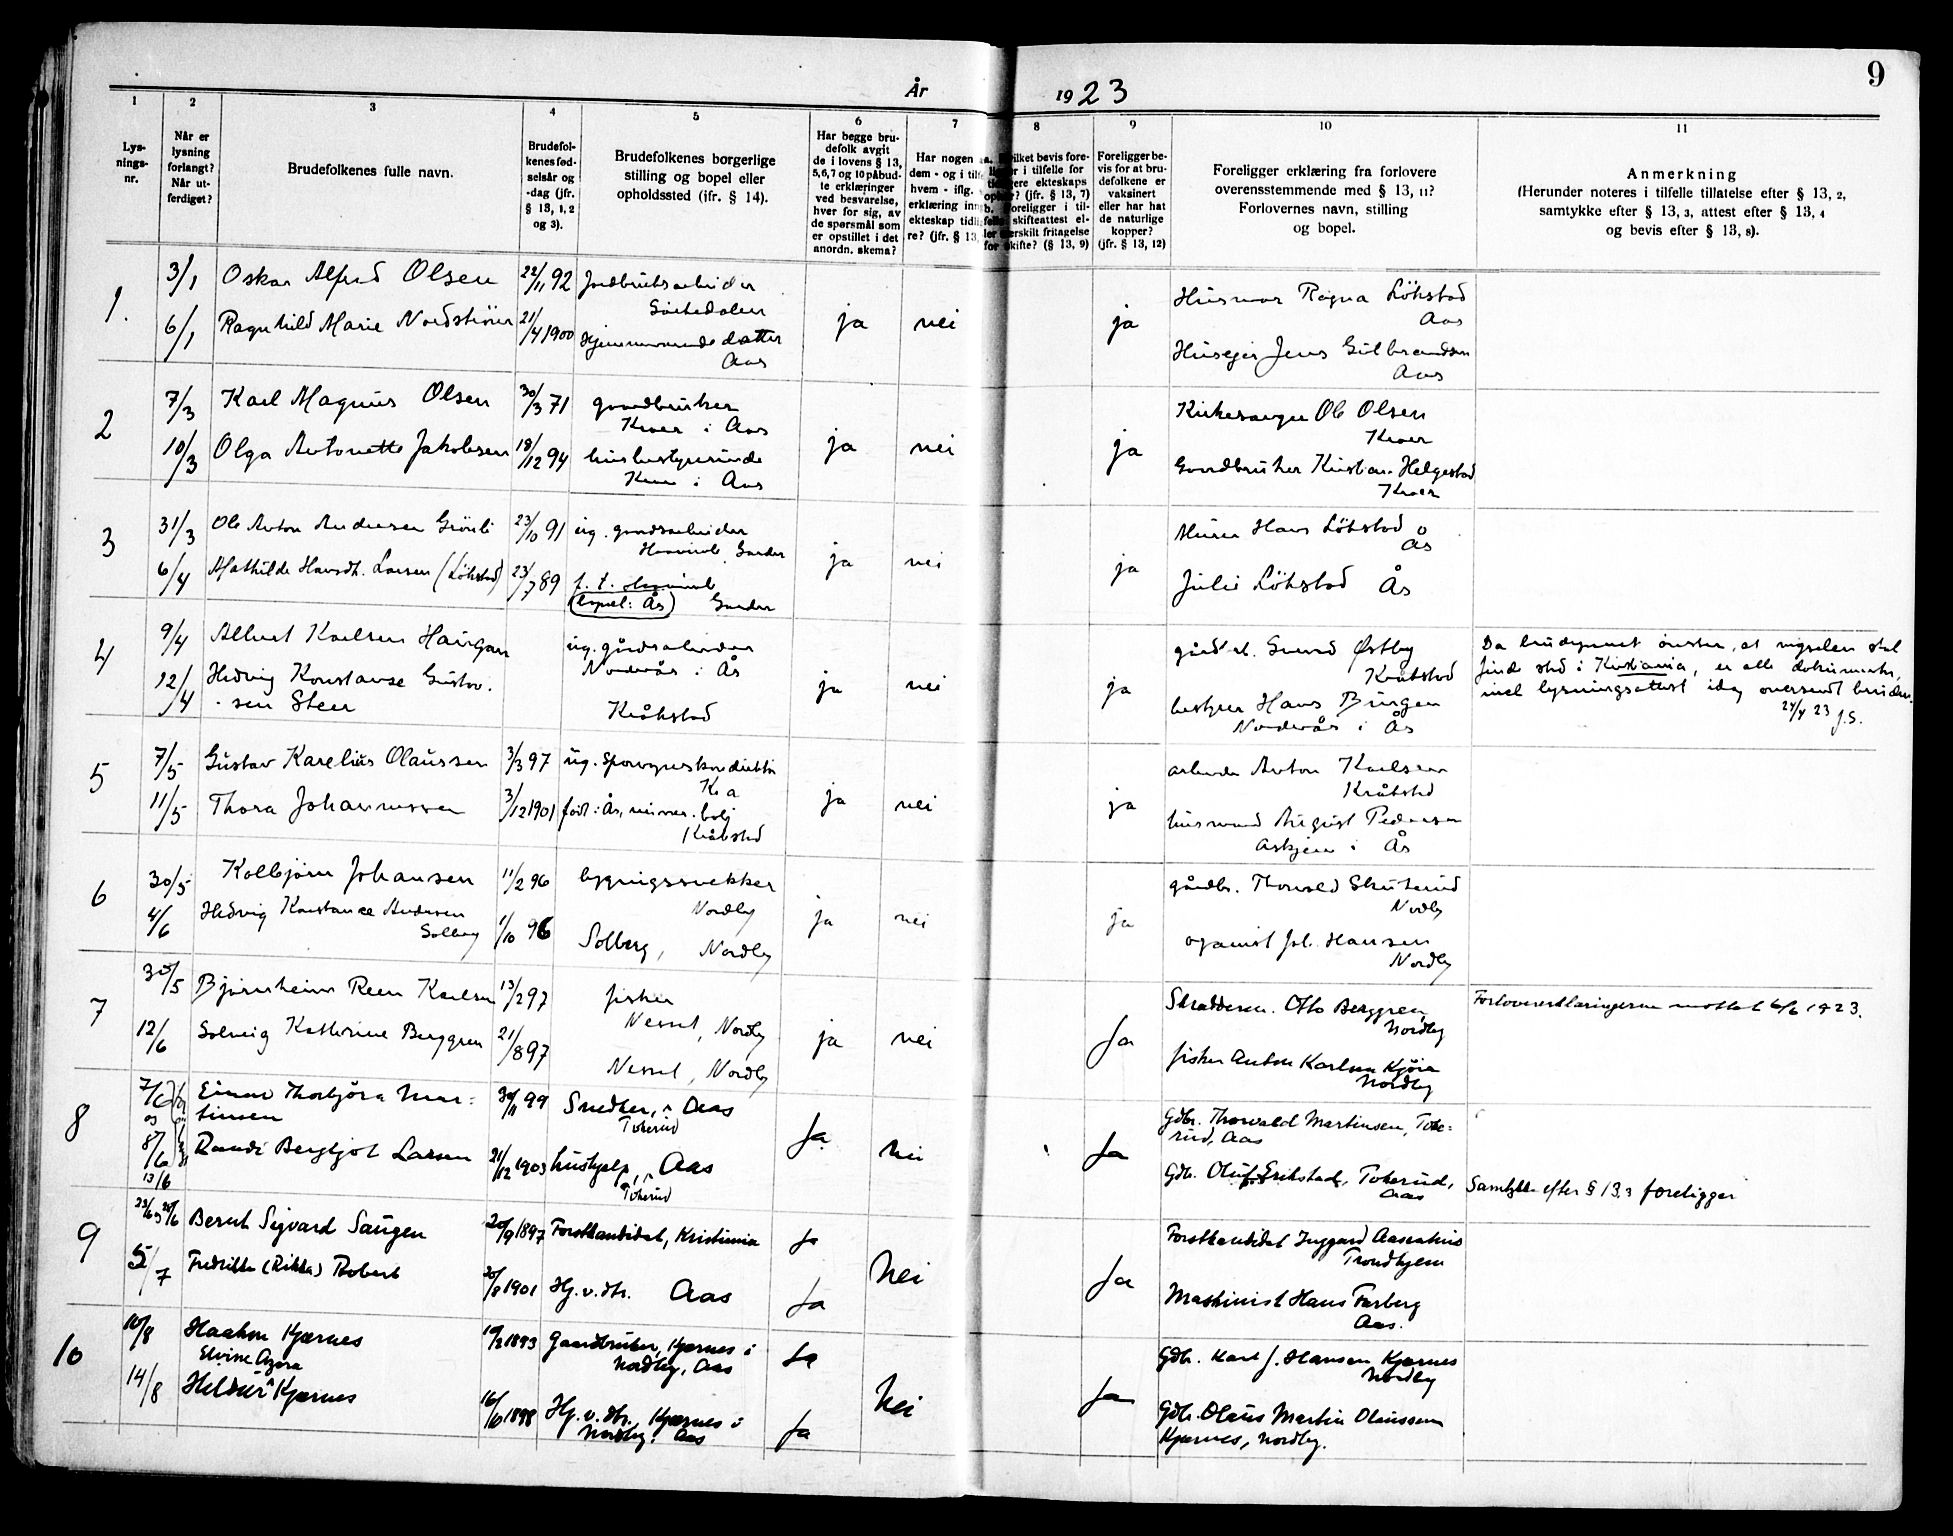 9
År 1923
1 2 3 4 5 6 7 8 9 10 11
Lys-
nings-
nr.
Når er
lysning
forlangt?
Når ut-
ferdiget?
Brudefolkenes fulle navn.
Brudefol-
kenes fød-
selsår og
-dag (jfr.
§ 13, 1, 2
og 3).
Brudefolkenes borgerlige
stilling og bopel eller
opholdssted (ifr. § 14).
Har begge bru-
defolk avgit
de i lovens § 13,
5, 6, 7 og 10 påbud-
te erklæringer
ved besvarelse,
hver for sig, av
de spørsmål som
er opstillet i det
anordn. skema?
Har nogen
dem - og i
hvem - iflg.
erklæring
ekteskap
re? (jfr. § 13
bevis fore-
i tilfelle for
ekteskaps
? (jfr. § 13, 7)
foreligger i til-
skifteattest el-
fritagelse
for skifte? (§ 13, 9)
Foreligger be-
vis for at bru-
defolkene er
vaksinert
eller har hat
de naturlige
kopper?
(jfr. § 13, 12)
Foreligger erklæring fra forlovere
overensstemmende med § 13, 11?
Forlovernes navn, stilling
og bopel.
Anmerkning
(Herunder noteres i tilfelle tillatelse efter § 13, 2,
samtykke efter § 13, 3, attest efter § 13, 4
og bevis efter § 13, 8).
1. 3/1 Oskar Alfred Olsen 22/11 92 Jordbruksarbeider
Sørkedalen
6/1 Ragnhild Marie Nordström 21/4 1900 Hjemmeværende datter
Aas
ja nei ja
Husmor Ragna Lökstad
Aas
Huseier Jens Gulbrandsen
Aas
2 7/3 Karl Magnus Olsen 30/3 71 gaardbruker
Kroer i Aas
10/3 Olga Antonette Jakobsen 18/12 94 husbestyrerinde
Kroer i Aas
ja nei ja
Kirkesanger Ole Olsen
Kroer
Gaardbruker Kristian Helgestad
Kroer
3 31/3 Ole Anton Andersen Grönli 23/10 91 ug. gaardsarbeider
Garder
6/4 Mathilde Hansdt. Larsen (Lökstad) 23/7 89 f. t.
(bopel: Ås) Garder
ja nei ja
Murer Hans Lökstad
Ås
Julie Lökstad Ås
4 9/4 Albert Karlsen Haugan ug. gårdsarbeider
Norderås i Ås
12/4 Hedvig Konstanse Gustav-
sen Steen
Kråkstad
ja nei ja
gårdbr. Østby
Kråkstad
bestyrer Hans Bungen
Norderås i Ås
Da brudeparet ønsker, at vigselen skal
finde sted i Kristiania, er alle dokumenter,
inkl lysningsattest idag oversendt bruden.
24/4 23 J.S.
5 7/5 Gustav Karelius Olaussen 3/3 97 ug. Sporveiskonduktør
Kra
11/5 Thora Johannessen 3/12 1901 født: Ås, bolig
Kråkstad
ja nei ja
arbeider Anton Karlsen
Kråkstad
husmand August Pedersen
Askjem i Ås
6 30/5 Kolbjörn Johansen 11/2 96 bygningssnekker
Nordby
4/6 Hedvig Konstance Andersen
Solberg 1/10 96 Solberg, Nordby
ja nei ja
gårdbr. Thorvald Skuterud
Nordby
organist Joh. Hansen
Nordby
7 30/5 Bjarnheim Reen Karlsen 13/2 97 fisker
Nesset, Nordby
12/6 Solveig Kathrine Berggren 21/8 97
Nesset, Nordby
ja nei Ja
Skrædderm. Otto Berggren
Nordby
fisker Anton Karlsen Kjöia
Nordby
Forlovererklæringerne mottat 6/6 1923.
8 7/6 Einar Thorbjörn Mar-
tinsen 30/11 99 Snedker, Aas
Tokerud
og
8/6 Randi Bergljot Larsen 21/12 1903 hushjelp, Aas
Tokerud
13/6
Ja Nei Ja
Gdbr. Thorvald Martinsen, Toke-
rud, Aas
Gdb. Oluf Erikstad, Tokerud,
Aas
Samtykke efter § 13,3 foreligger
9 22/6 28/6 Bernt Sigvard Saugen 20/9 1897 Forstkandidat, Kristiania Ja
5/7 Fredrikke (Rikka) Robert 20/8 1901 Hj.v.dtr. Aas Ja
Nei Ja
Forstkandidat Inggard
Trondhjem
Maskinist Hans Farberg
Aas.
10 10/8 Haakon Kjærnes 19/2 1893 Gaardbruker, Kjærnes i
Nordby, Aas Ja
Elvine Azora
14/8 Hildur Kjærnes 16/10 1898 Hj.v.dtr. Kjærnes i
Nordby, Aas Ja
Nei Ja
Gdb. Karl J. Hansen Kjærnes
Nordby
Gdb. Olaus Martin Olaussen
Kjærnes, Nordby.